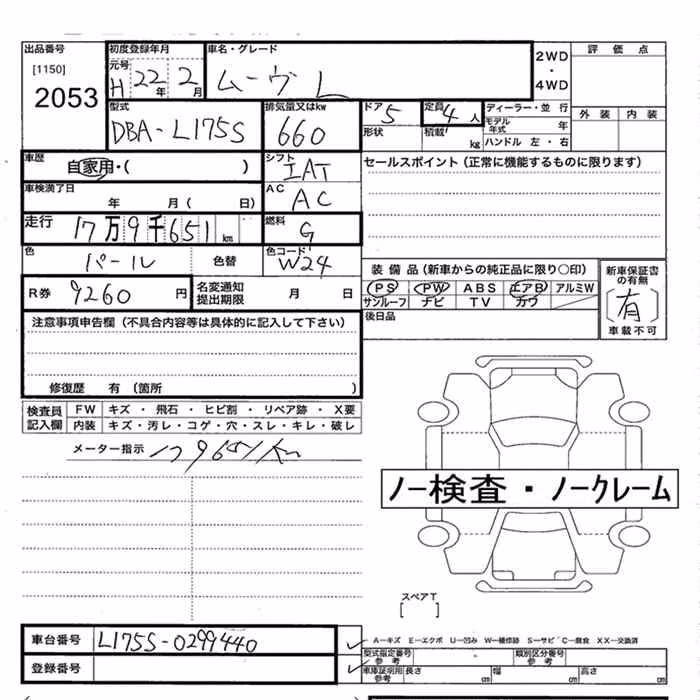 出品番号 初度登録年月 車名・グレード 2WD・4WD 評価点
[1150] 元号 H 22年 2月 ムーヴ L
2053 外装 内装
型式 DBA-L175S 排気量又はkw 660 ドア 5 定員 4人 ディーラー・並行
形状 積載 kg モデル年式 年
ハンドル 左・右
車歴 自家用・( ) シフト IAT セールスポイント(正常に機能するものに限ります)
車検満了日 年 月( 日) AC AC
走行 17万9千651km 燃料 G
色 パール 色替 色コード W24
装備品(新車からの純正品に限り○印) 新車保証書の有無
R券 9260円 名変通知提出期限 月 日 PS PW ABS エアB アルミW [有]
サンルーフ ナビ TV カワ 車載不可
注意事項申告欄(不具合内容等は具体的に記入して下さい) 後日品
修復歴 有(箇所 )
検査員記入欄 FW キズ・飛石・ヒビ割・リペア跡・X要
内装 キズ・汚レ・コゲ・穴・スレ・キレ・破レ
メーター指示 179651km
ノー検査・ノークレーム
スペアT
[ ]
車台番号 L175S-0299440 A-キズ E-エクボ U-凹み W-補修跡 S-サビ C-腐食 XX-交換済
型式指定番号 参考 類別区分番号 参考
登録番号 車庫証明用参考 長さ cm 幅 cm 高さ cm